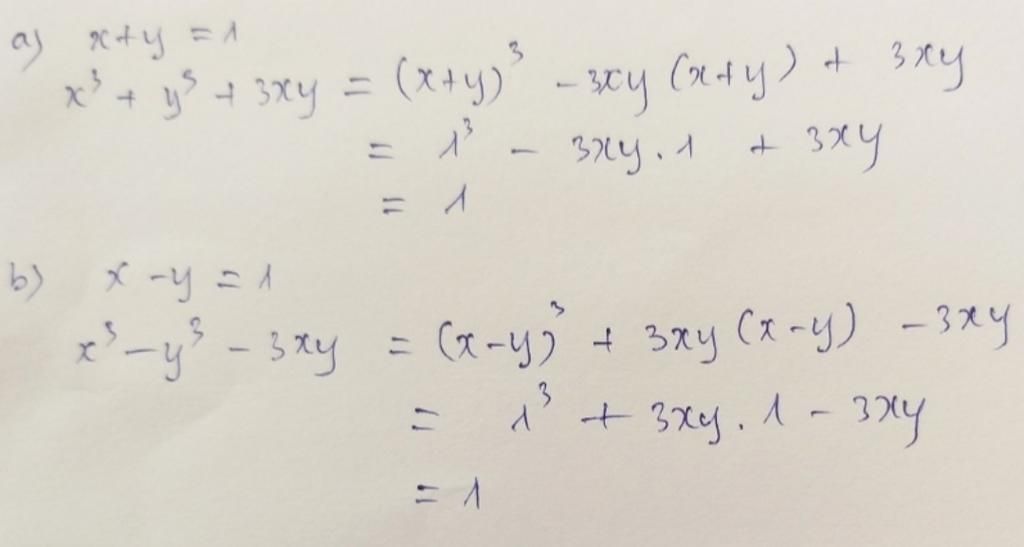 a) x+y = 1
x³ + y³ + 3xy = (x+y)³ - 3xy (x+y) + 3xy
= 1³ - 3xy . 1 + 3xy
= 1
b) x - y = 1
x³ - y³ - 3xy = (x-y)³ + 3xy (x-y) - 3xy
= 1³ + 3xy . 1 - 3xy
= 1